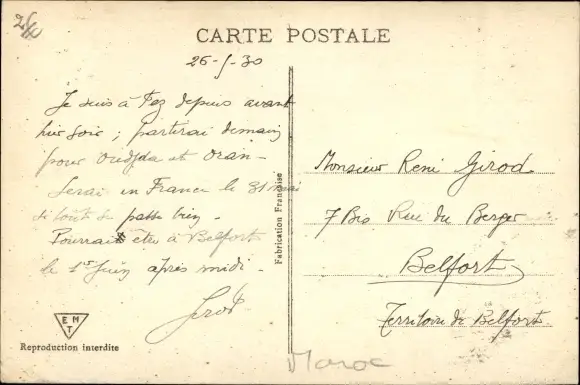 CARTE POSTALE
26-5-30
Je suis à Fez depuis avant
hier soir ; partirai demain
pour Oudjda et Oran -
Serai en France le 31 mai
si tout se passe bien -
Pourrais être à Belfort
le 1er Juin après midi -
Fabrication Française
Monsieur René Girod
7 Bis Rue du Berger
Belfort
Territoire de Belfort.
EMT
Reproduction interdite
Maroc